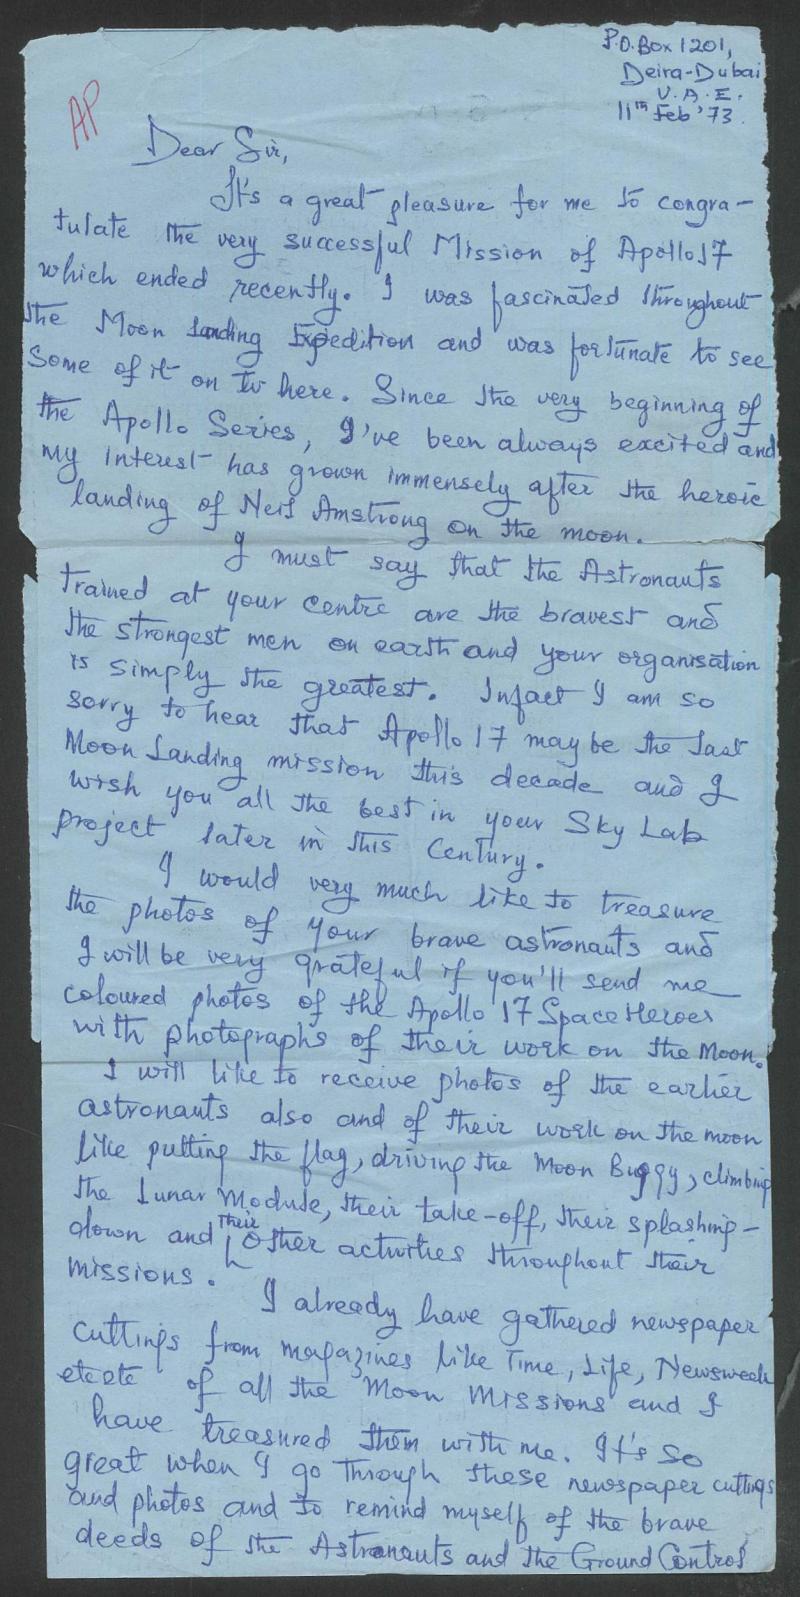 P.O. Box 1201,
Deira-Dubai
U.A.E.
11th Feb '73.
AP
Dear Sir,
It's a great pleasure for me to congra-
tulate the very successful Mission of Apollo 17
which ended recently. I was fascinated throughout
the Moon Landing Expedition and was fortunate to see
Some of it on TV here. Since the very beginning of
the Apollo Series, I've been always excited and
my interest has grown immensely after the heroic
landing of Neil Amstrong on the moon.
I must say that the Astronauts
trained at your centre are the bravest and
the strongest men on earth and your organisation
is simply the greatest. Infact I am so
sorry to hear that Apollo 17 maybe the last
Moon Landing mission this decade and I
wish you all the best in your Sky Lab
project later in this Century.
I would very much like to treasure
the photos of your brave astronauts and
I will be very grateful if you'll send me
coloured photos of the Apollo 17 Space Heroes
with photographs of their work on the Moon.
I will like to receive photos of the earlier
astronauts also and of their work on the moon
like putting the flag, driving the Moon Buggy, climbing
the Lunar Module, their take-off, their splashing-
down and their other activities throughout their
missions.
I already have gathered newspaper
cuttings from magazines like Time, Life, Newsweek
etcetc of all the Moon Missions and I
have treasured them with me. It's so
great when I go through these newspaper cuttings
and photos and to remind myself of the brave
deeds of the Astronauts and the Ground Control